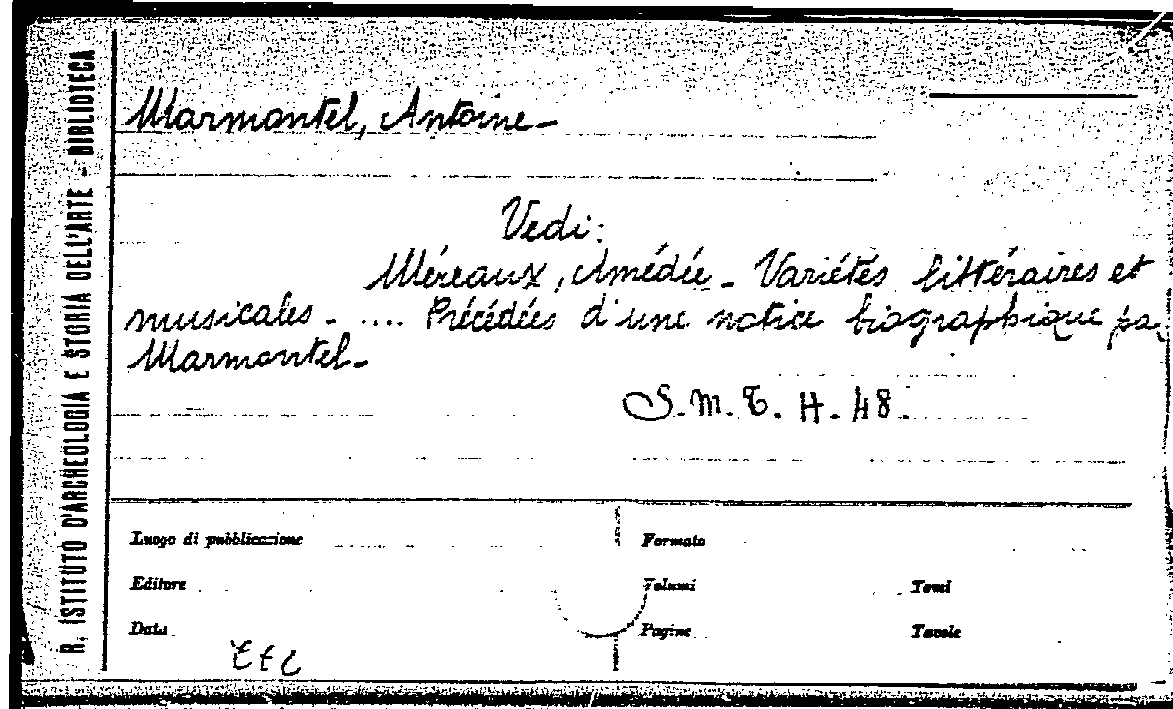 R. ISTITUTO D'ARCHEOLOGIA E STORIA DELL'ARTE - BIBLIOTECA
Marmontel, Antoine -
Vedi:
Méreaux, Amédée - Variétés littéraires et
musicales - .... Précédées d'une notice biographique pa
Marmontel -
S. M. T. H. 48.
Luogo di pubblicazione
Formato
Editore
Volumi
Tomi
Data
Pagine
Tavole